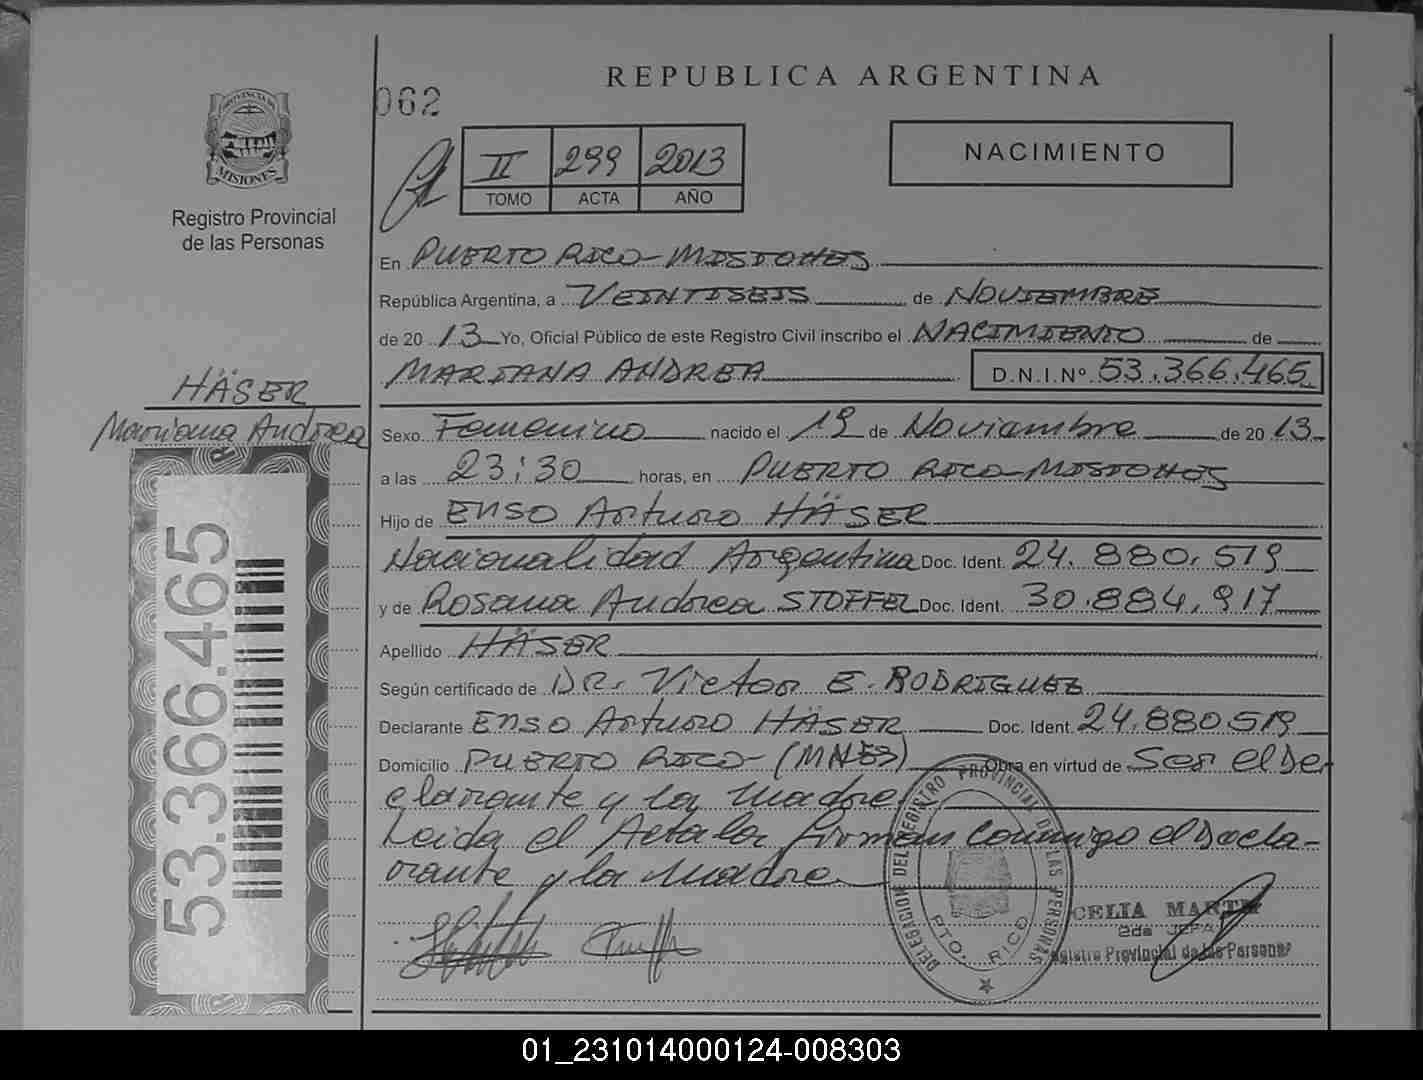 REPUBLICA ARGENTINA
062
PROVINCIA DE
MISIONES
Registro Provincial
de las Personas
II 299 2013
TOMO ACTA AÑO
NACIMIENTO
En PUERTO RICO - MISIONES
República Argentina, a VEINTISEIS de NOVIEMBRE
de 20 13 Yo, Oficial Público de este Registro Civil inscribo el NACIMIENTO de
MARIANA ANDREA D.N.I.Nº 53.366.465
HÄSER
Mariana Andrea
Sexo Femenino nacido el 19 de Noviembre de 20 13
a las 23:30 horas, en PUERTO RICO - MISIONES
Hijo de Enso Arturo HÄSER
Nacionalidad Argentina Doc. Ident. 24.880.519
y de Rosana Andrea STOFFEL Doc. Ident. 30.884.917
Apellido HÄSER
Según certificado de DR. Victor E. RODRIGUEZ
Declarante Enso Arturo HÄSER Doc. Ident. 24.880.519
Domicilio PUERTO RICO - (MNES) Obra en virtud de Ser el De
clarante y la Madre
Leida el Acta la firman conmigo el Decla-
rante y la Madre
53.366.465
DELEGACION DEL REGISTRO PROVINCIAL DE LAS PERSONAS
PTO. RICO
CELIA
2da JEFA
Registro Provincial de las Personas
01_231014000124-008303